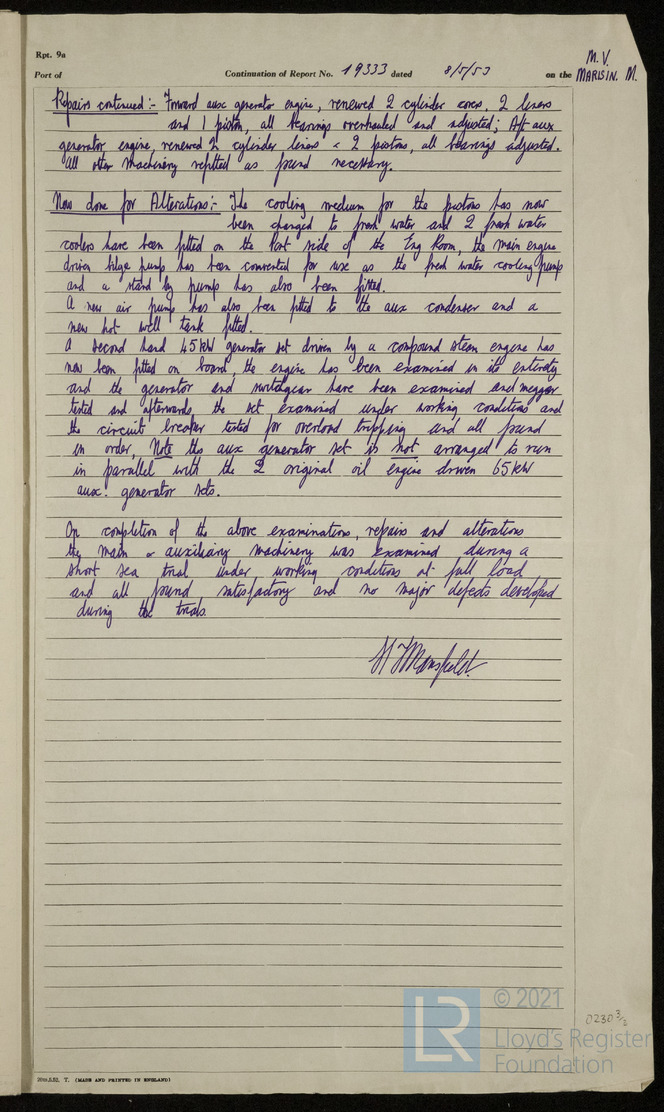 Rpt. 9a
Port of Continuation of Report No. 19333 dated 8/5/53 on the M.V. MARISIN. M.
Repairs continued:- Forward aux generator engine, renewed 2 cylinder covers, 2 liners
and 1 piston, all bearings overhauled and adjusted; Aft aux
generator engine, renewed 2 cylinder liners & 2 pistons, all bearings adjusted.
All other machinery refitted as found necessary.
Now done for Alterations:- The cooling medium for the pistons has now
been changed to fresh water and 2 fresh water
coolers have been fitted on the Port side of the Eng Room, the main engine
driven bilge pump has been converted for use as the fresh water cooling pump
and a stand by pump has also been fitted.
A new air pump has also been fitted to the aux condenser and a
new hot well tank fitted.
A second hand 45kW generator set driven by a compound steam engine has
now been fitted on board, the engine has been examined in its entirety
and the generator and switchgear have been examined and megger
tested and afterwards the set examined under working conditions and
the circuit breaker tested for overload tripping and all found
in order, Note this aux generator set is not arranged to run
in parallel with the 2 original oil engine driven 65kW
aux. generator sets.
On completion of the above examinations, repairs and alterations
the main & auxiliary machinery was examined during a
short sea trial under working conditions at full load
and all found satisfactory and no major defects developed
during the trials.
H F Mansfield.
© 2021
LR
Lloyd's Register
Foundation
0230 3/3
20m.5.52. T. (MADE AND PRINTED IN ENGLAND)